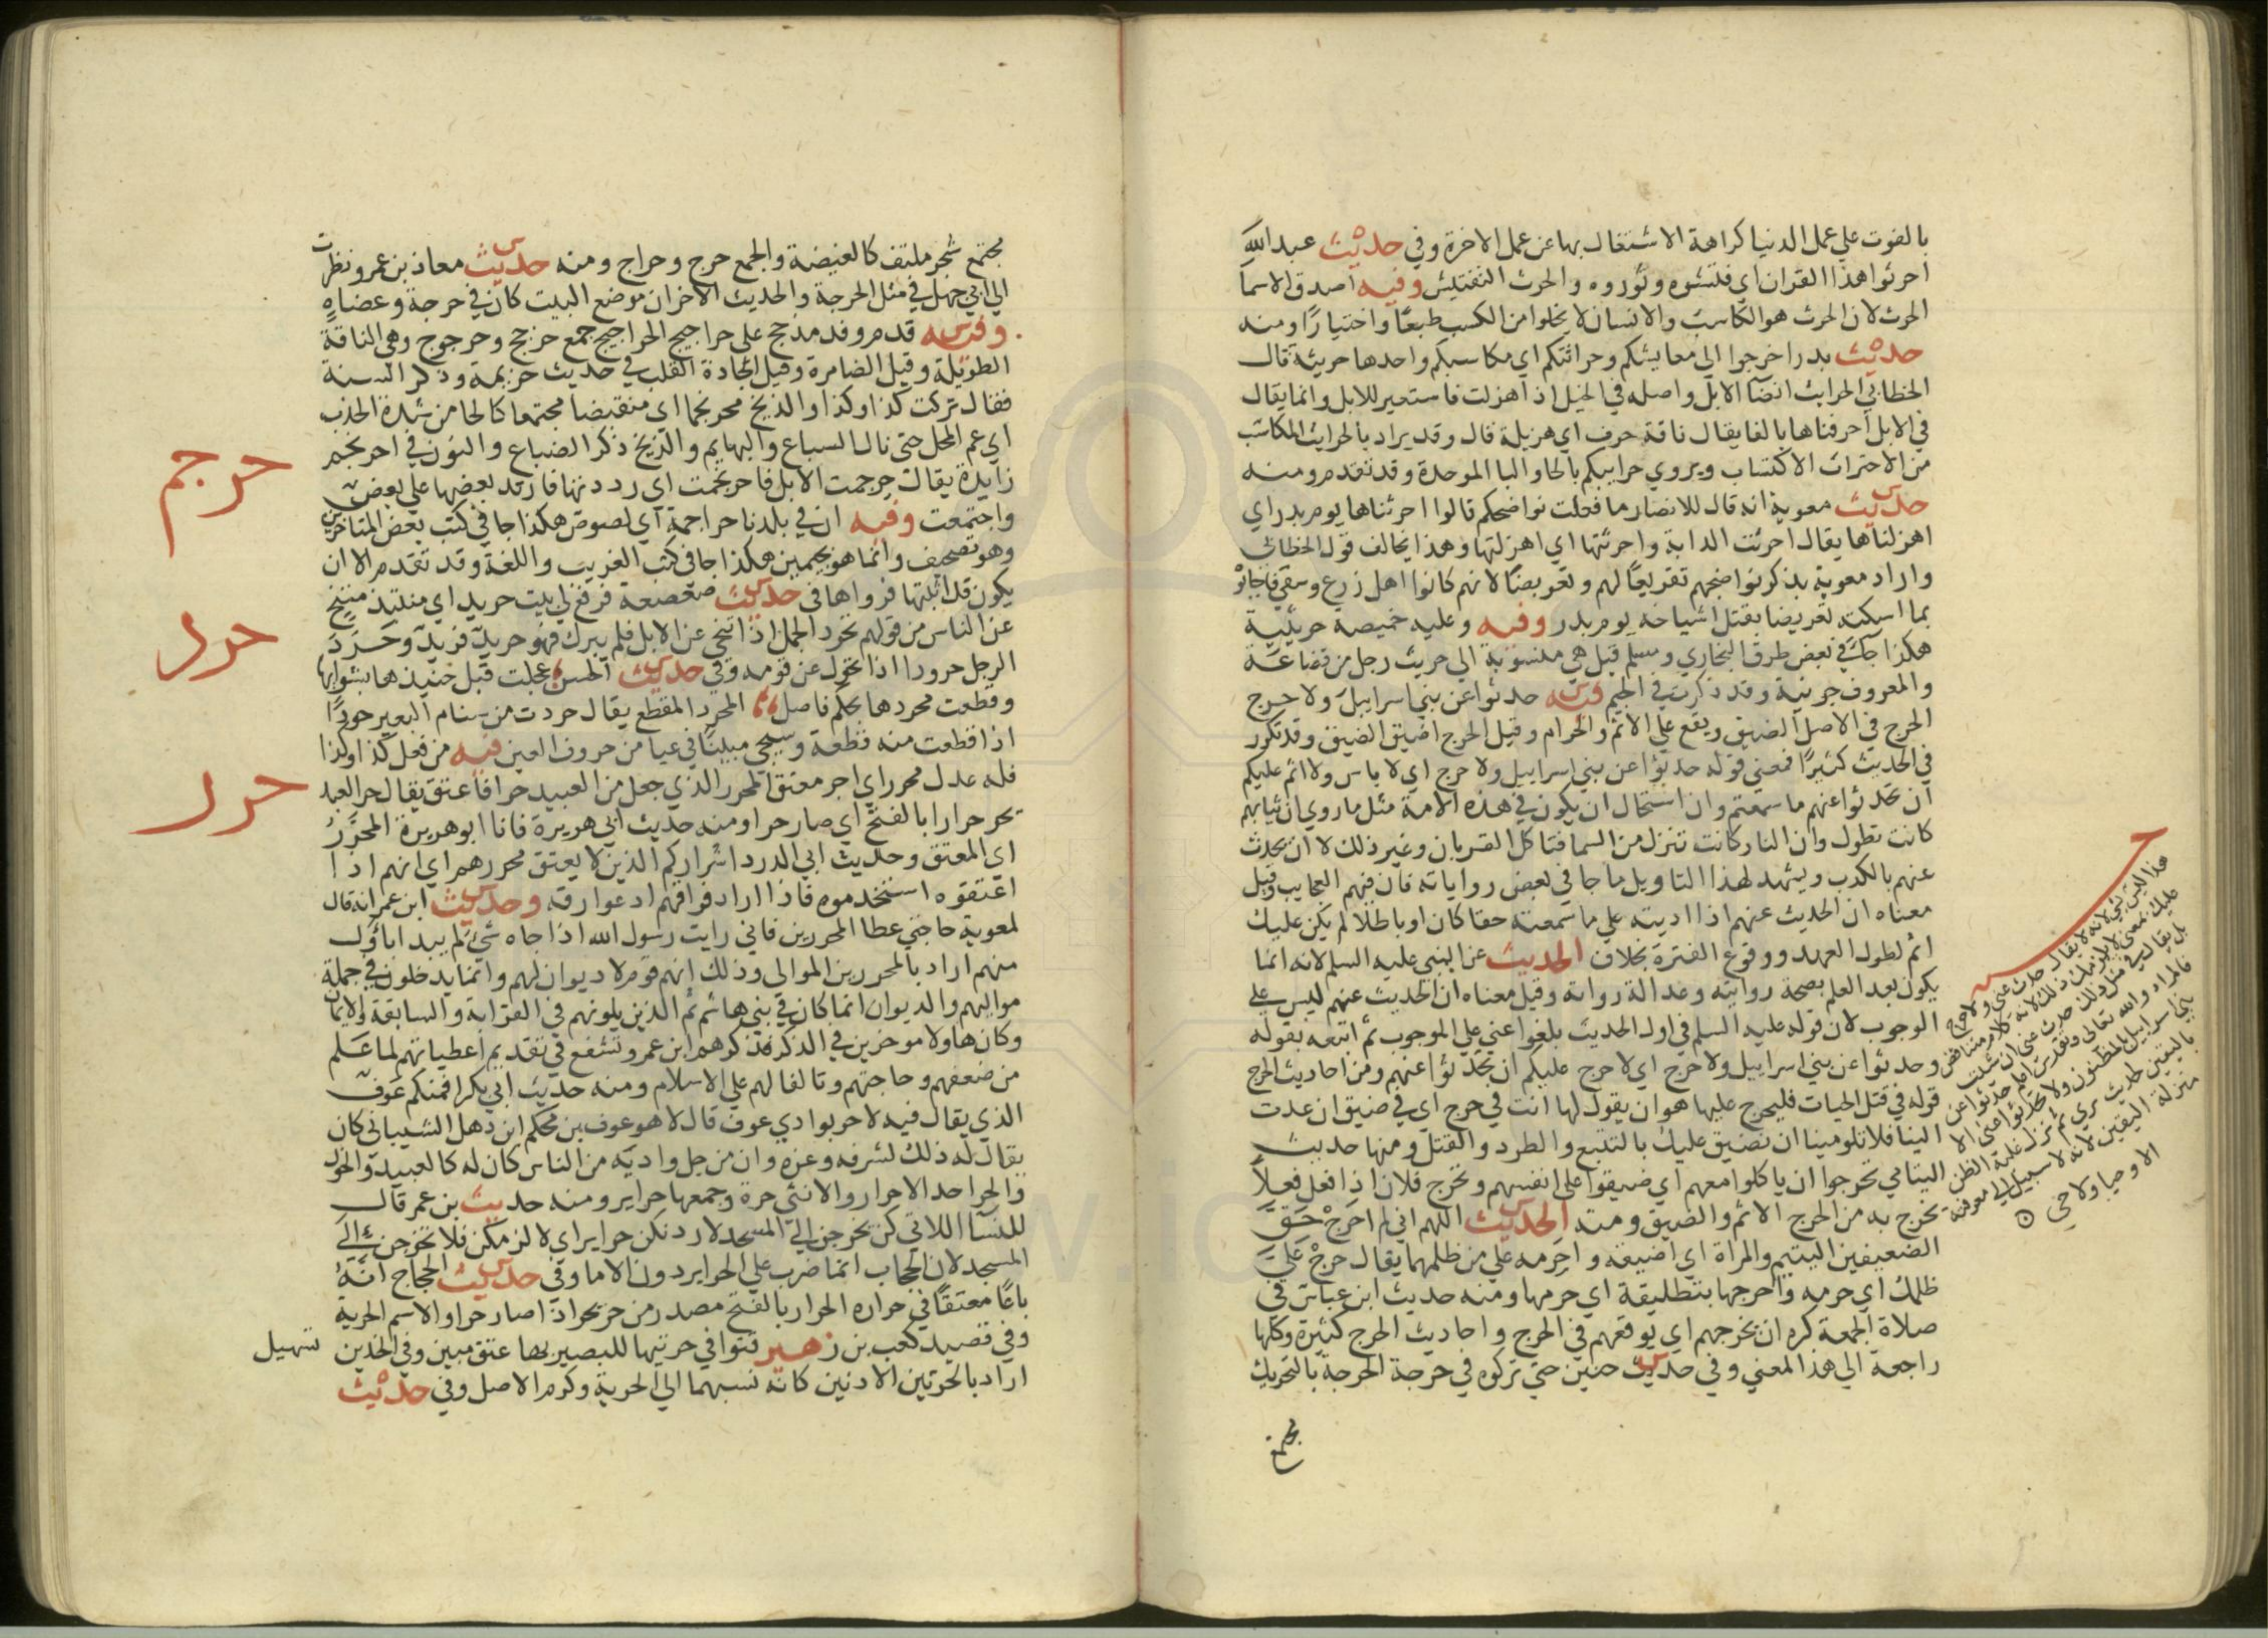 بالفوت علي عمل الدنيا كراهة الاشتغال بها عن عمل الاخرة وفي حديث عبد الله
احرثوا هذا القران اي فتشوه وثوروه والحرث التفتيش وفيه اصدق الاسما
الحرث لان الحرث هو الكاسب والانسان لا يخلوا من الكسب طبعا واختيارا ومنه
حديث بدر اخرجوا الي معايشكم وحراثتكم اي مكاسبكم واحدها حريثة قال
الخطابي الحرايث انضآ الابل واصله في الخيل اذا هزلت فاستعير للابل وانما يقال
في الابل احرفناها بالفا يقال ناقة حرف اي هزيلة قال وقد يراد بالحرايث المكاسب
من الاحتراث الاكتساب ويروي حرايبكم بالحا والبا الموحدة وقد تقدم ومنه
حديث معوية انه قال للانصار ما فعلت نواضحكم قالوا احرثناها يوم بدر اي
اهزلناها يقال احرثت الدابة واحرثتها اي اهزلتها وهذا يخالف قول الخطابي
واراد معوية بذكر نواضحهم تقريعا لهم وتعريضا لانهم كانوا اهل زرع وسقي فاجابوْ
بما اسكته تعريضا بقتل اشياخه يوم بدر وفيه وعليه خميصة حريثية
هكذا جآ في بعض طرق البخاري ومسلم قيل هي منسوبة الي حريث رجل من قضاعة
والمعروف جونية وقد ذكرت في الجيم فيه حدثوا عن بني اسراييل ولا حرج
الحرج في الاصل الضيق ويقع علي الاثم والحرام وقيل الحرج اضيق الضيق وقد تكرر
في الحديث كثيرا فمعني قوله حدثوا عن بني اسراييل ولا حرج اي لا باس ولا اثم عليكم
ان تحدثوا عنهم ما سمعتم وان استحال ان يكون في هذه الامة مثل ما روي ان ثيابهم
كانت تطول وان النار كانت تنزل من السما فتاكل القربان وغير ذلك لا ان يحدث
عنهم بالكذب ويشهد لهذا التاويل ما جا في بعض رواياته فان فيهم العجايب وقيل
معناه ان الحديث عنهم اذا اديته علي ما سمعته حقا كان او باطلا لم يكن عليك
اثم لطول العهد ووقوع الفترة بخلاف الحديث عن النبي عليه السلم لانه انما
يكون بعد العلم بصحة روايته وعدالة رواته وقيل معناه ان الحديث عنهم ليس علي
الوجوب لان قوله عليه السلم في اول الحديث بلغوا عني علي الوجوب ثم اتبعه بقوله
وحدثوا عن بني اسراييل ولا حرج اي لا حرج عليكم ان تحدثوا عنهم ومن احاديث الحرج
قوله في قتل الحيات فليحرج عليها هو ان يقول لها انت في حرج اي في ضيق ان عدت
الينا فلا تلومينا ان نضيق عليك بالتتبع والطرد والقتل ومنها حديث
اليتامي تحرجوا ان ياكلوا معهم اي ضيقوا علي انفسهم وتحرج فلان اذا فعل فعلا
تحرج به من الحرج الاثم والضيق ومنه الحديث اللهم اني احرج حق
الضعيفين اليتيم والمراة اي اضيقه واحرمه علي من ظلمهما يقال حرج علي
ظلمك اي حرمه واحرجها بتطليقة اي حرمها ومنه حديث ابن عباس في
صلاة الجمعة كره ان يحرجهم اي يوقعهم في الحرج واحاديث الحرج كثيرة وكلها
راجعة الي هذا المعني وفي حديث حنين حتي تركوه في حرجة الحرجة بالتحريك
مجتمع
هذا ليس بشي لانه لا يقال حدث عني ولا حرج
عليك بمعني لا يلزمك ذلك لانه كلام متناقض
بل يقال في مثل ذلك حدث عني ان شئت
فالمراد والله تعالي وتقدس اعلم حدثوا عن
بني اسراييل بالمظنون ولا تحدثوا عني الا
باليقين
منزلة اليقين لانه لا سبيل الي معرفته
الاوصيا ولا حي
مجتمع شجر ملتف كالغيضة والجمع حرج وحراج ومنه حديث معاذ بن عمرو نظرت
الي ابي جهل في مثل الحرجة والحديث الاخر ان موضع البيت كان في حرجة وعضاه
وفيه قدم وفد مذحج علي حراجيج الحراجيج جمع حرجج وحرجوج وهي الناقة
الطويلة وقيل الضامرة وقيل الحادة القلب في حديث خزيمة وذكر السنة
فقال تركت كذا وكذا والذيخ محرنجما اي منقبضا مجتمعا كالحا من شدة الجدب
اي عم المحل حتي نال السباع والبهايم والذيخ ذكر الضباع والنون في احرنجم
زايدة يقال حرجمت الابل فاحرنجمت اي رددتها فارتد بعضها علي بعض
واجتمعت وفيه ان في بلدنا حراجمة اي لصوص هكذا جا في كتب بعض المتاخرين
وهو تصحيف وانما هو بجيمين هكذا جا في كتب الغريب واللغة وقد تقدم الا ان
يكون قد اثبتها فرواها في حديث صعصعة فرفع لي بيت حريد اي منتبذ متنح
عن الناس من قولهم تحرد الجمل اذا تنحي عن الابل فلم يبرك فهو حريد فريد وحرد
الرجل حرودا اذا تحول عن قومه وفي حديث الحسن عجلت قبل حنيذها بشوايها
وقطعت محردها بحكم فاصل المحرد المقطع يقال حردت من سنام البعير حردا
اذا قطعت منه قطعة وسيجي مبينا في عيا من حروف العين فيه من فعل كذا وكذا
فله عدل محرر اي اجر معتق المحرر الذي جعل من العبيد حرا فاعتق يقال حر العبد
يحر حرارا بالفتح اي صار حرا ومنه حديث ابي هريرة فانا ابو هريرة المحرر
اي المعتق وحديث ابي الدردا شراركم الذين لا يعتق محررهم اي انهم اذا
اعتقوه استخدموه فاذا اراد فراقهم ادعوا رقه وحديث ابن عمر انه قال
لمعوية حاجتي عطا المحررين فاني رايت رسول الله اذا جاه شي لم يبدا باول
منهم اراد بالمحررين الموالي وذلك انهم قوم لا ديوان لهم وانما يدخلون في جملة
مواليهم والديوان انما كان في بني هاشم ثم الذين يلونهم في القرابة والسابقة والايمان
وكان هاولا موخرين في الذكر فذكرهم ابن عمر وتشفع في تقديم اعطياتهم لما علم
من ضعفهم وحاجتهم وتالفا لهم علي الاسلام ومنه حديث ابي بكر افمنكم عوف
الذي يقال فيه لا حر بوادي عوف قال لا هو عوف بن محكم ابن ذهل الشيباني كان
يقال له ذلك لشرفه وعزه وان من حل واديه من الناس كان له كالعبيد والخول
والحر احد الاحرار والانثي حرة وجمعها حراير ومنه حديث بن عمر قال
للنسآ اللاتي كن يخرجن الي المسجد لاردنكن حراير اي لالزمكن فلا تخرجن الي
المسجد لان الحجاب انما ضرب علي الحراير دون الاما وفي حديث الحجاج انه
باع معتقا في حراره الحرار بالفتح مصدر من حر يحر اذا صار حرا والاسم الحرية
وفي قصيد كعب بن زهير قنوا في حرتيها للبصير بها عتق مبين وفي الخدين تسهيل
اراد بالحرتين الاذنين كانه نسبهما الي الحرية وكرم الاصل وفي حديث
حرجم
حرد
حرر